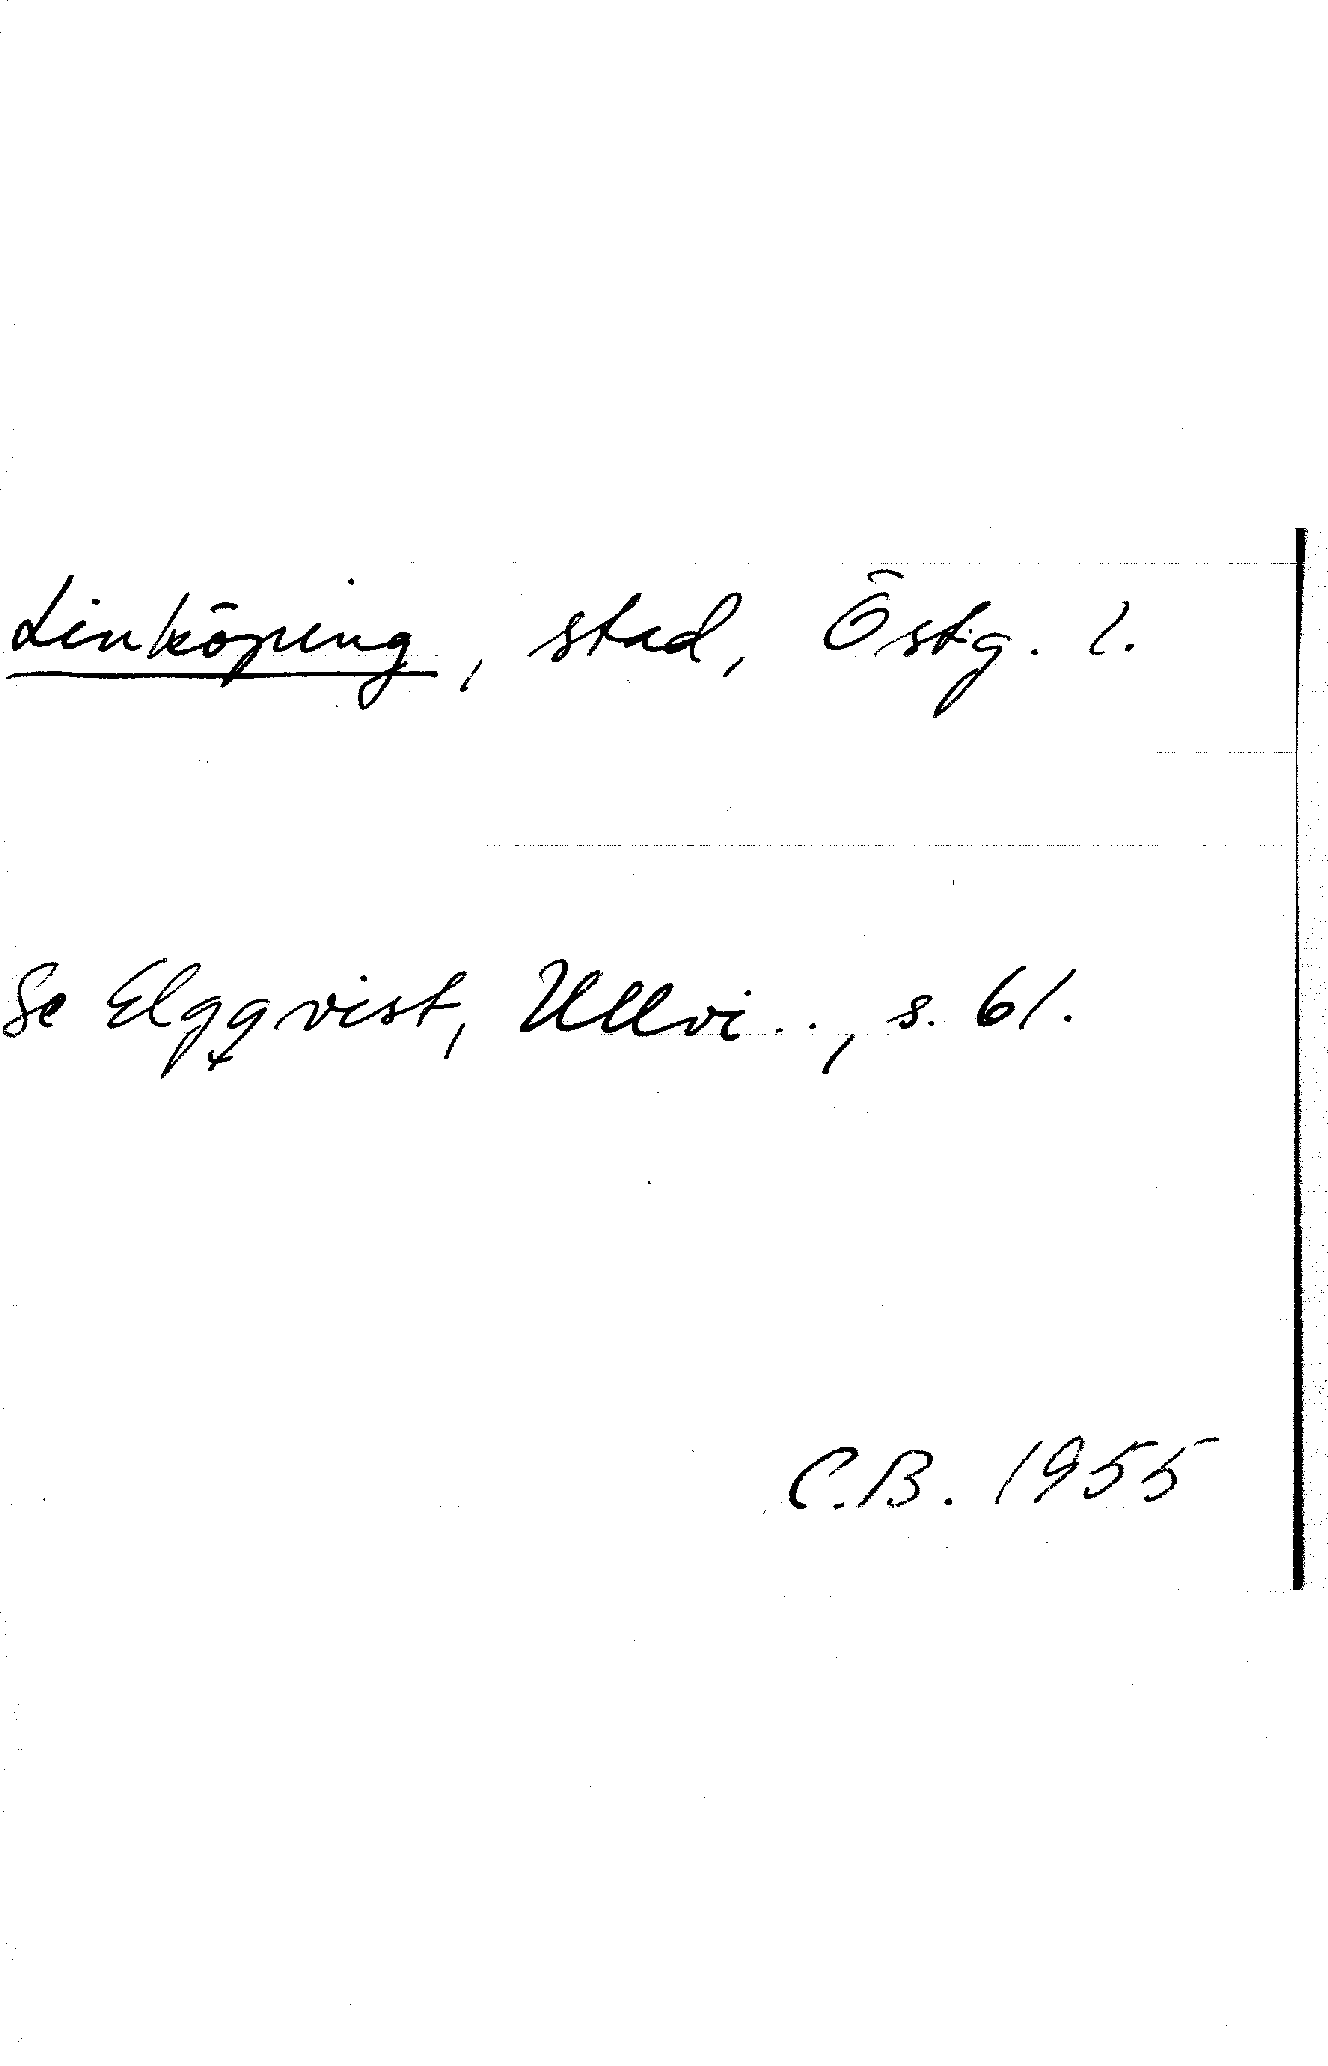 Linköping, stad, Östg. l.
Se Elgqvist, Ullvi . . , s. 61.
C.B. 1955